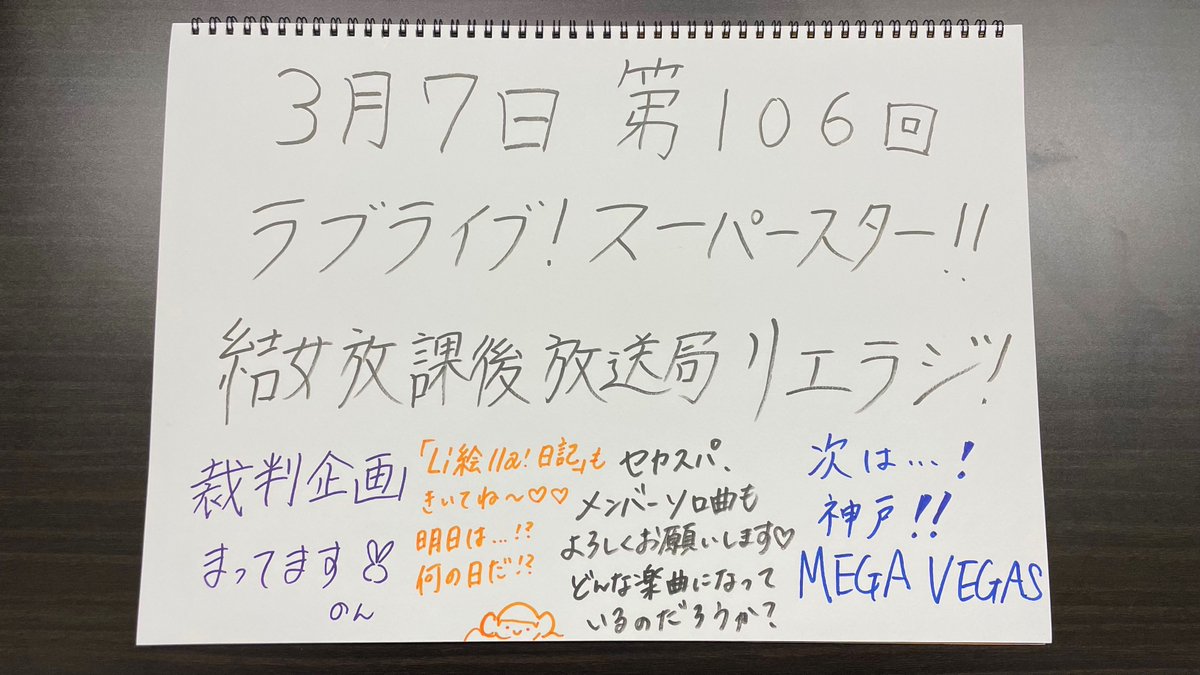 3月7日 第106回
ラブライブ!スーパースター!!
結女放課後放送局リエラジ!
裁判企画
まってます
のん
「Li絵lla!日記」も
きいてね〜♡♡
明日は…!?
何の日だ!?
セカスパ、
メンバーソロ曲も
よろしくお願いします♡
どんな楽曲になって
いるのだろうか?
次は…!
神戸!!
MEGA VEGAS